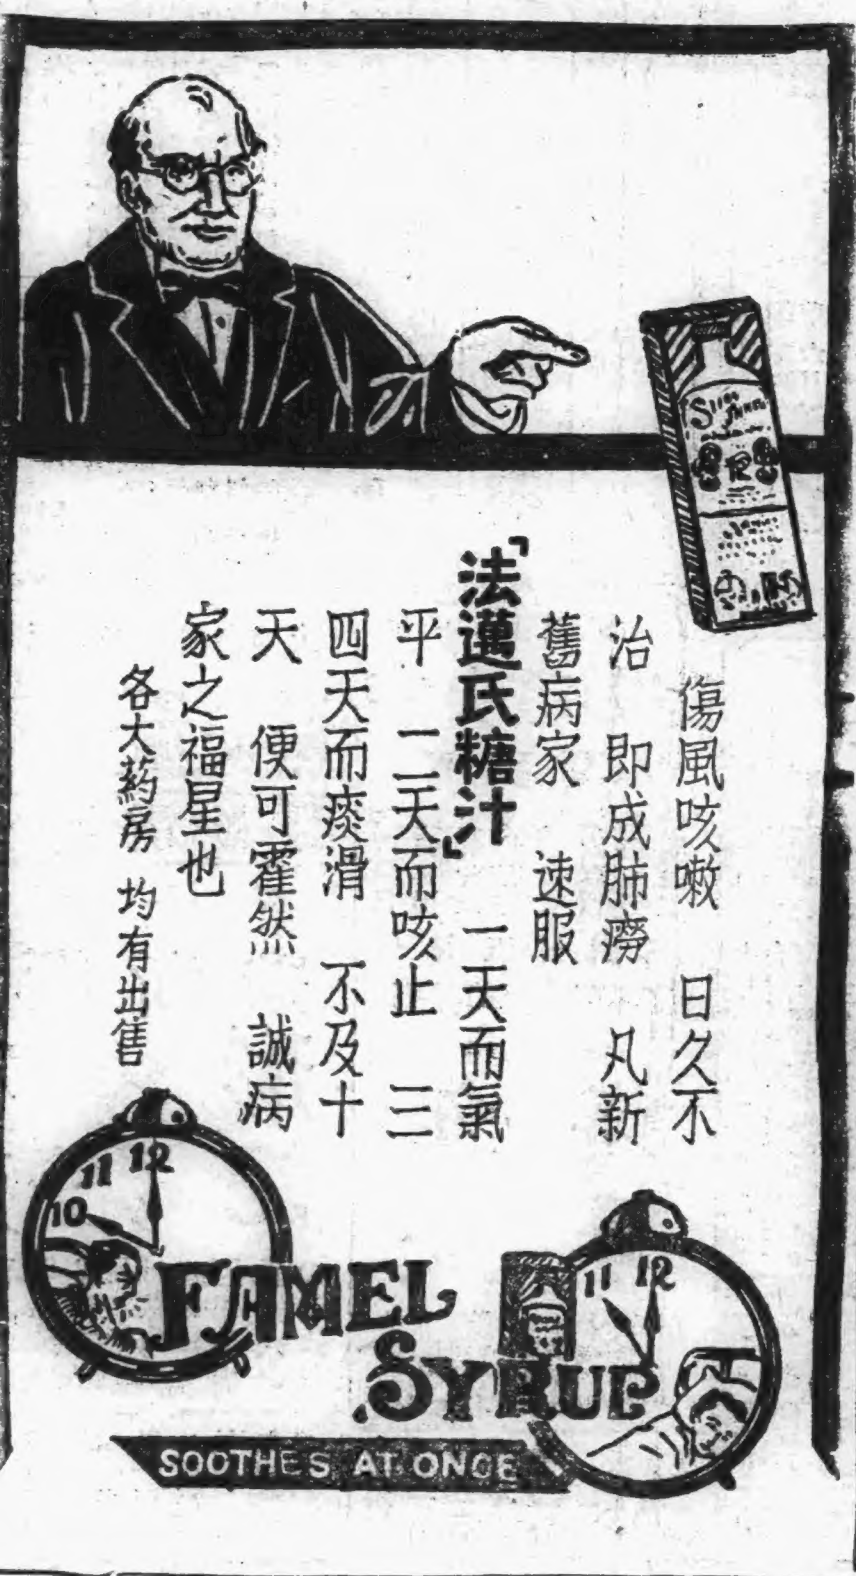 傷風咳嗽 日久不
治 即成肺癆 凡新
舊病家 速服
「法邁氏糖汁」 一天而氣
平 二天而咳止 三
四天而痰滑 不及十
天 便可霍然 誠病
家之福星也
各大葯房 均有出售
12
11
10
FAMEL
11 12
SYRUP
SOOTHES AT ONCE